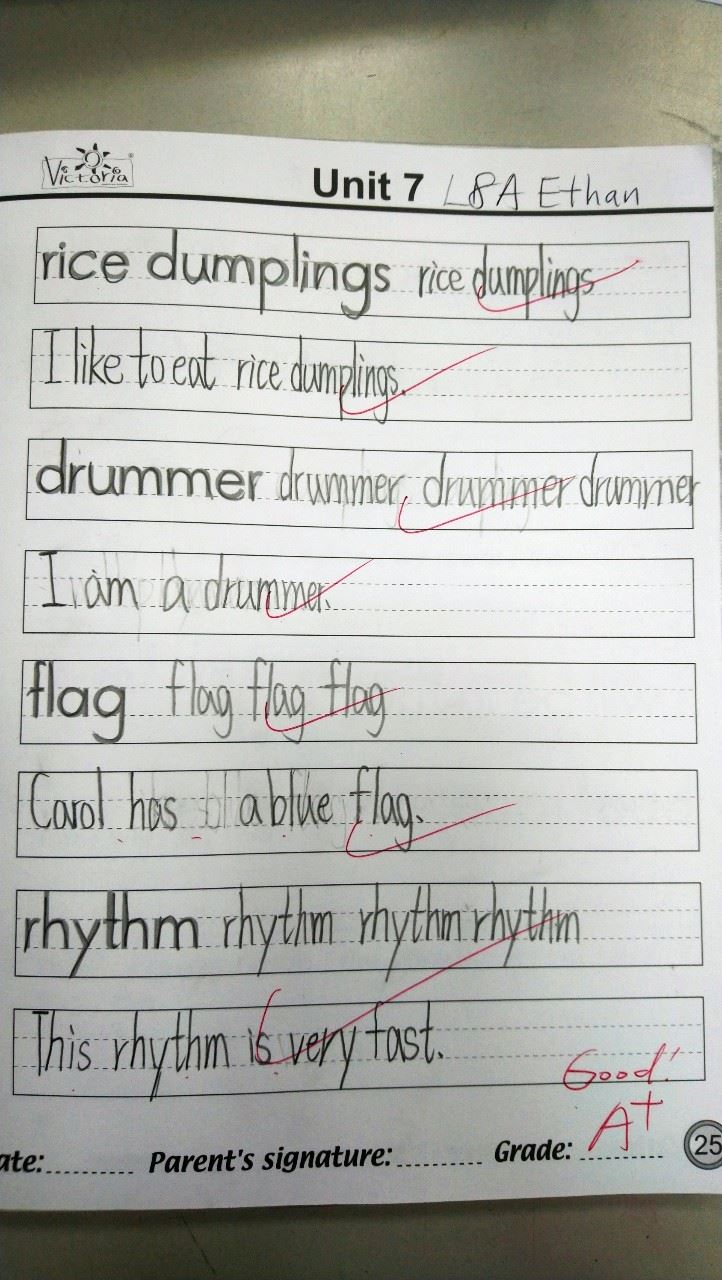 Victoria
Unit 7 L8A Ethan
rice dumplings rice dumplings
I like to eat rice dumplings.
drummer drummer drummer drummer
I am a drummer.
flag flag flag flag
Carol has a blue flag.
rhythm rhythm rhythm rhythm
This rhythm is very fast.
Good!
A+
ate: Parent's signature: Grade: 25